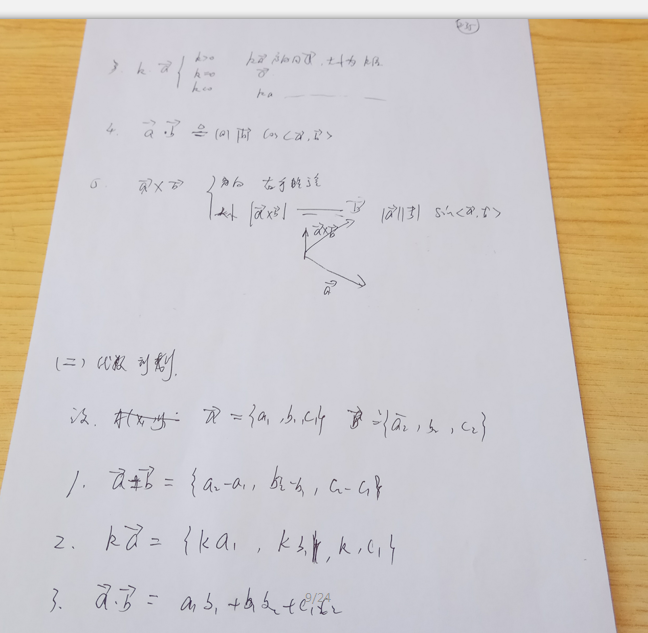 3 k a⃗ { k>0 ka⃗ 方向同a⃗, 大小为
k=0 0⃗
k<0 ka
4. a⃗·b⃗ ≜ |a⃗||b⃗| cos<a⃗,b⃗>
5. a⃗×b⃗ { 方向 右手准则
大小 |a⃗×b⃗| == |a⃗||b⃗| sin<a⃗,b⃗>
b⃗
a⃗×b⃗
a⃗
(二) 代数
设. a⃗ = {a₁, b₁, c₁} b⃗ = {a₂, b₂, c₂}
1. a⃗ b⃗ = {a₂-a₁, b₂-b₁, c₂-c₁}
2. ka⃗ = {ka₁, kb₁, k,c₁}
3. a⃗·b⃗ = a₁b₁+b₁b₂+c₁c₂
9/24